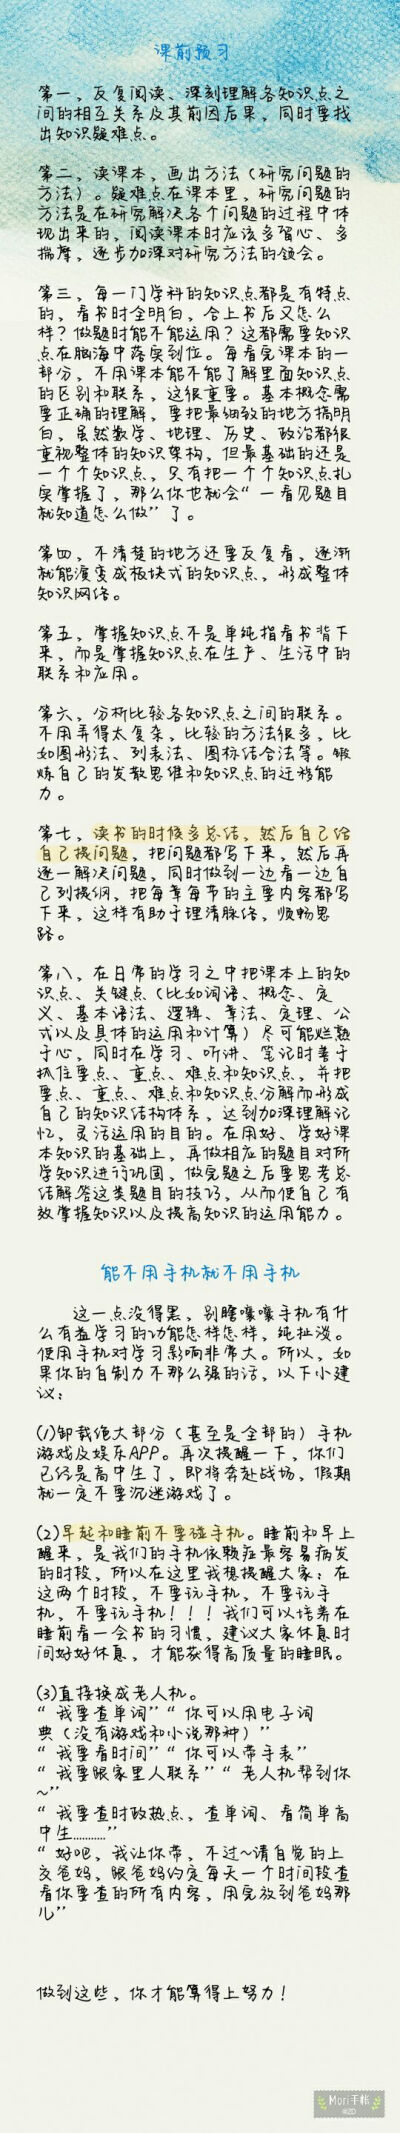 课前预习
第一，反复阅读、深刻理解各知识点之
间的相互关系及其前因后果，同时要找
出知识疑难点。
第二，读课本，画出方法（研究问题的
方法）。疑难点在课本里，研究问题的
方法是在研究解决各个问题的过程中体
现出来的，阅读课本时应该多留心、多
揣摩，逐步加深对研究方法的领会。
第三，每一门学科的知识点都是有特点
的，看书时全明白，合上书后又怎么
样？做题时能不能运用？这都需要知识
点在脑海中落实到位。每看完课本的一
部分，不用课本能不能了解里面知识点
的区别和联系，这很重要。基本概念需
要正确的理解，要把最细致的地方搞明
白，虽然数学、地理、历史、政治都很
重视整体的知识架构，但最基础的还是
一个个知识点，只有把一个个知识点扎
实掌握了，那么你也就会“一看见题目
就知道怎么做”了。
第四，不清楚的地方还要反复看，逐渐
就能演变成板块式的知识点，形成整体
知识网络。
第五，掌握知识点不是单纯指看书背下
来，而是掌握知识点在生产、生活中的
联系和应用。
第六，分析比较各知识点之间的联系。
不用弄得太复杂，比较的方法很多，比
如图形法、列表法、图标结合法等。锻
炼自己的发散思维和知识点的迁移能
力。
第七，读书的时候多总结，然后自己给
自己提问题，把问题都写下来，然后再
逐一解决问题，同时做到一边看一边自
己列提纲，把每章每节的主要内容都写
下来，这样有助于理清脉络，顺畅思
路。
第八，在日常的学习之中把课本上的知
识点、关键点（比如词语、概念、定
义、基本语法、逻辑、章法、定理、公
式以及具体的运用和计算）尽可能烂熟
于心，同时在学习、听讲、笔记时善于
抓住要点、重点、难点和知识点，并把
要点、重点、难点和知识点分解而形成
自己的知识结构体系，达到加深理解记
忆，灵活运用的目的。在用好、学好课
本知识的基础上，再做相应的题目对所
学知识进行巩固，做完题之后要思考总
结解答这类题目的技巧，从而使自己有
效掌握知识以及提高知识的运用能力。
能不用手机就不用手机
这一点没得黑，别瞎嚷嚷手机有什
么有益学习的功能怎样怎样，纯扯淡。
使用手机对学习影响非常大。所以，如
果你的自制力不那么强的话，以下小建
议：
(1)卸载绝大部分（甚至是全部的）手机
游戏及娱乐APP。再次提醒一下，你们
已经是高中生了，即将奔赴战场，假期
就一定不要沉迷游戏了。
(2)早起和睡前不要碰手机。睡前和早上
醒来，是我们的手机依赖症最容易病发
的时段，所以在这里我想提醒大家：在
这两个时段，不要玩手机，不要玩手
机，不要玩手机！！！我们可以培养在
睡前看一会书的习惯，建议大家休息时
间好好休息，才能获得高质量的睡眠。
(3)直接换成老人机。
“我要查单词”“你可以用电子词
典（没有游戏和小说那种）”
“我要看时间”“你可以带手表”
“我要跟家里人联系”“老人机帮到你
~”
“我要查时政热点，查单词、看简单高
中生…………”
“好吧，我让你带，不过~请自觉的上
交爸妈，跟爸妈约定每天一个时间段查
看你要查的所有内容，用完放到爸妈那
儿”
做到这些，你才能算得上努力！
Mori手帐